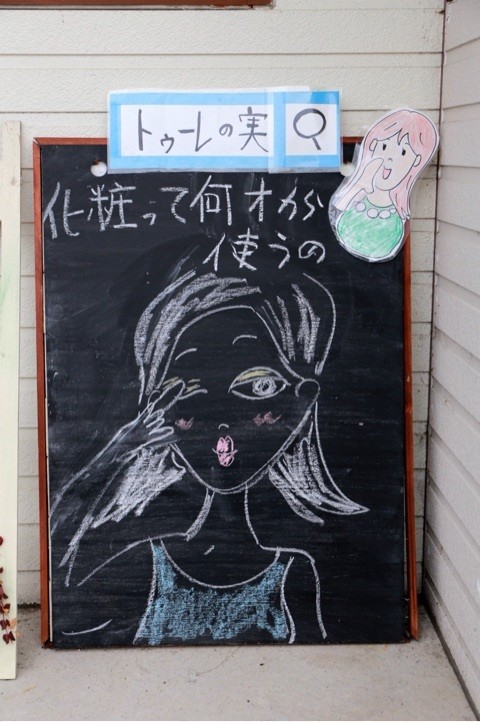 トゥーレの実
化粧って何才から
使うの